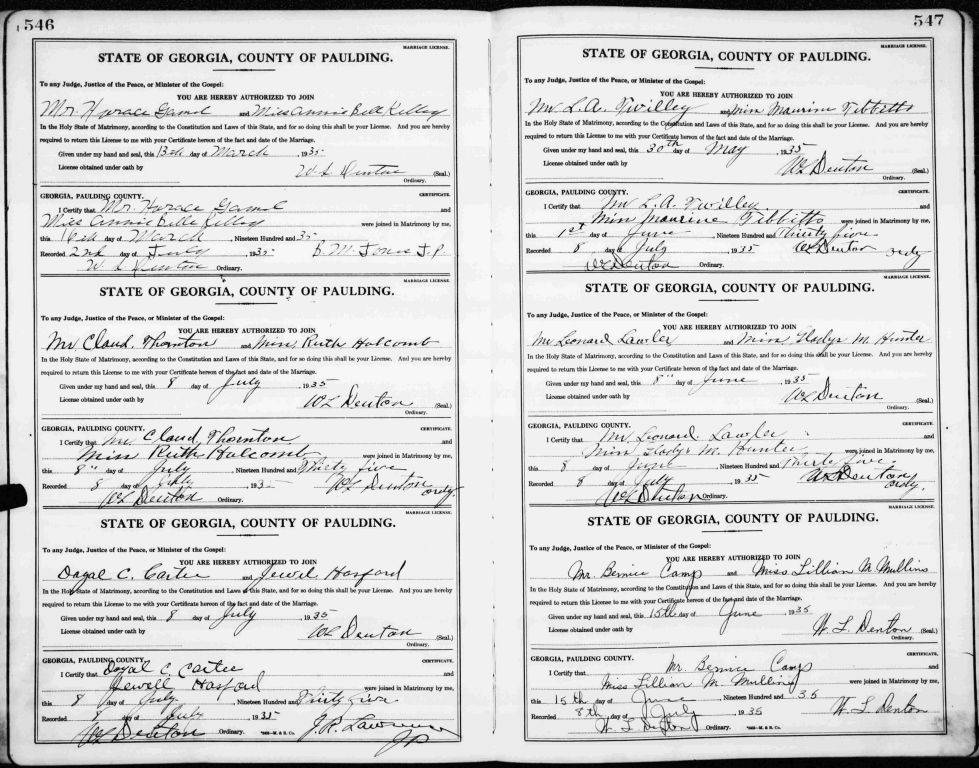 546
MARRIAGE LICENSE.
STATE OF GEORGIA, COUNTY OF PAULDING.
To any Judge, Justice of the Peace, or Minister of the Gospel:
YOU ARE HEREBY AUTHORIZED TO JOIN
Mr. Horace and Miss Annie Bell Kelley
In the Holy State of Matrimony, according to the Constitution and Laws of this State, and for so doing this shall be your License. And you are hereby
required to return this License to me with your Certificate hereon of the fact and date of the Marriage.
Given under my hand and seal, this 13th day of March, 1935
License obtained under oath by W. L. Denton (Seal.)
Ordinary.
GEORGIA, PAULDING COUNTY. CERTIFICATE.
I Certify that Mr. Horace and
Miss Annie Belle Kelley were joined in Matrimony by me,
this day of March, Nineteen Hundred and 35
Recorded 2nd of July, 1935 B. M. Jones J.P.
W. L. Denton Ordinary.
MARRIAGE LICENSE.
STATE OF GEORGIA, COUNTY OF PAULDING.
To any Judge, Justice of the Peace, or Minister of the Gospel:
YOU ARE HEREBY AUTHORIZED TO JOIN
Mr Claud. Thornton and Miss Ruth Holcomb
In the Holy State of Matrimony, according to the Constitution and Laws of this State, and for so doing this shall be your License. And you are hereby
required to return this License to me with your Certificate hereon of the fact and date of the Marriage.
Given under my hand and seal, this 8 day of July, 1935
License obtained under oath by WL Denton (Seal.)
Ordinary.
GEORGIA, PAULDING COUNTY. CERTIFICATE.
I Certify that Mr. Claud Thornton and
Miss Ruth Holcomb were joined in Matrimony by me,
this 8" day of July, Nineteen Hundred and Thirty five
Recorded 8 of July, 193 WL Denton
WL Denton Ordinary. ordy
MARRIAGE LICENSE.
STATE OF GEORGIA, COUNTY OF PAULDING.
To any Judge, Justice of the Peace, or Minister of the Gospel:
YOU ARE HEREBY AUTHORIZED TO JOIN
Dayal C. Cartee and Jewel Hasford
In the Holy State of Matrimony, according to the Constitution and Laws of this State, and for so doing this shall be your License. And you are hereby
required to return this License to me with your Certificate hereon of the fact and date of the Marriage.
Given under my hand and seal, this 8 day of July, 1935
License obtained under oath by WL Denton (Seal.)
Ordinary.
GEORGIA, PAULDING COUNTY. CERTIFICATE.
I Certify that Dayal C. Cartee and
Jewell Hasford were joined in Matrimony by me,
this 8 day of July, Nineteen Hundred and Thirty five
Recorded 8 of July 1935 J.R.
WL Denton Ordinary. JP
547
MARRIAGE LICENSE.
STATE OF GEORGIA, COUNTY OF PAULDING.
To any Judge, Justice of the Peace, or Minister of the Gospel:
YOU ARE HEREBY AUTHORIZED TO JOIN
Mr L.A. Twilley and Miss Maurine Tibbitts
In the Holy State of Matrimony, according to the Constitution and Laws of this State, and for so doing this shall be your License. And you are hereby
required to return this License to me with your Certificate hereon of the fact and date of the Marriage.
Given under my hand and seal, this 30th day of May, 1935
License obtained under oath by WL Denton (Seal.)
Ordinary.
GEORGIA, PAULDING COUNTY. CERTIFICATE.
I Certify that Mr L.A. Twilley and
Miss Maurine Tibbitts were joined in Matrimony by me,
this 1st day of June, Nineteen Hundred and Thirty five
Recorded 8 of July, 1935 WL Denton ordy
WL Denton Ordinary.
MARRIAGE LICENSE.
STATE OF GEORGIA, COUNTY OF PAULDING.
To any Judge, Justice of the Peace, or Minister of the Gospel:
YOU ARE HEREBY AUTHORIZED TO JOIN
Mr Leonard Lawler and Miss Gladys M. Hunter
In the Holy State of Matrimony, according to the Constitution and Laws of this State, and for so doing this shall be your License. And you are hereby
required to return this License to me with your Certificate hereon of the fact and date of the Marriage.
Given under my hand and seal, this 8" day of June, 1935
License obtained under oath by WL Denton (Seal.)
Ordinary.
GEORGIA, PAULDING COUNTY. CERTIFICATE.
I Certify that Mr Leonard Lawler and
Miss Gladys M. Hunter were joined in Matrimony by me,
this 8 day of June, Nineteen Hundred and Thirty five
Recorded 8 of July, 1935 WL Denton
WL Denton Ordinary. ordy.
MARRIAGE LICENSE.
STATE OF GEORGIA, COUNTY OF PAULDING.
To any Judge, Justice of the Peace, or Minister of the Gospel:
YOU ARE HEREBY AUTHORIZED TO JOIN
Mr. Bernice Camp and Miss Lillian M. Mullins
In the Holy State of Matrimony, according to the Constitution and Laws of this State, and for so doing this shall be your License. And you are hereby
required to return this License to me with your Certificate hereon of the fact and date of the Marriage.
Given under my hand and seal, this 15th day of June, 1935
License obtained under oath by W. L. Denton (Seal.)
Ordinary.
GEORGIA, PAULDING COUNTY. CERTIFICATE.
I Certify that Mr. Bernice Camp and
Miss Lillian M. Mullins were joined in Matrimony by me,
this 15th day of June, Nineteen Hundred and 35
Recorded 8th of July, 1935 W. L. Denton
W. L. Denton Ordinary.